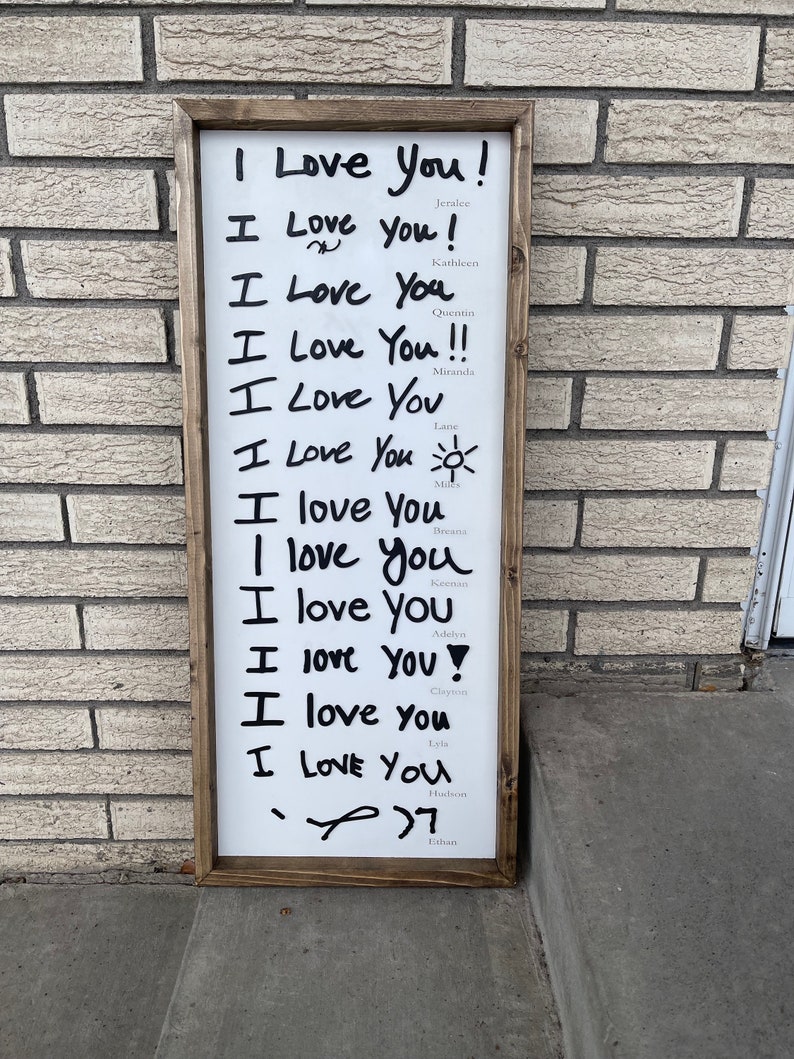 I Love You!
Jeralee
I Love You!
Kathleen
I Love You
Quentin
I Love You!!
Miranda
I Love You
Lane
I Love You
Miles
I love You
Breana
I love you
Keenan
I love you
Adelyn
I love you!
Clayton
I love you
Lyla
I LOVE YOU
Hudson
Ethan